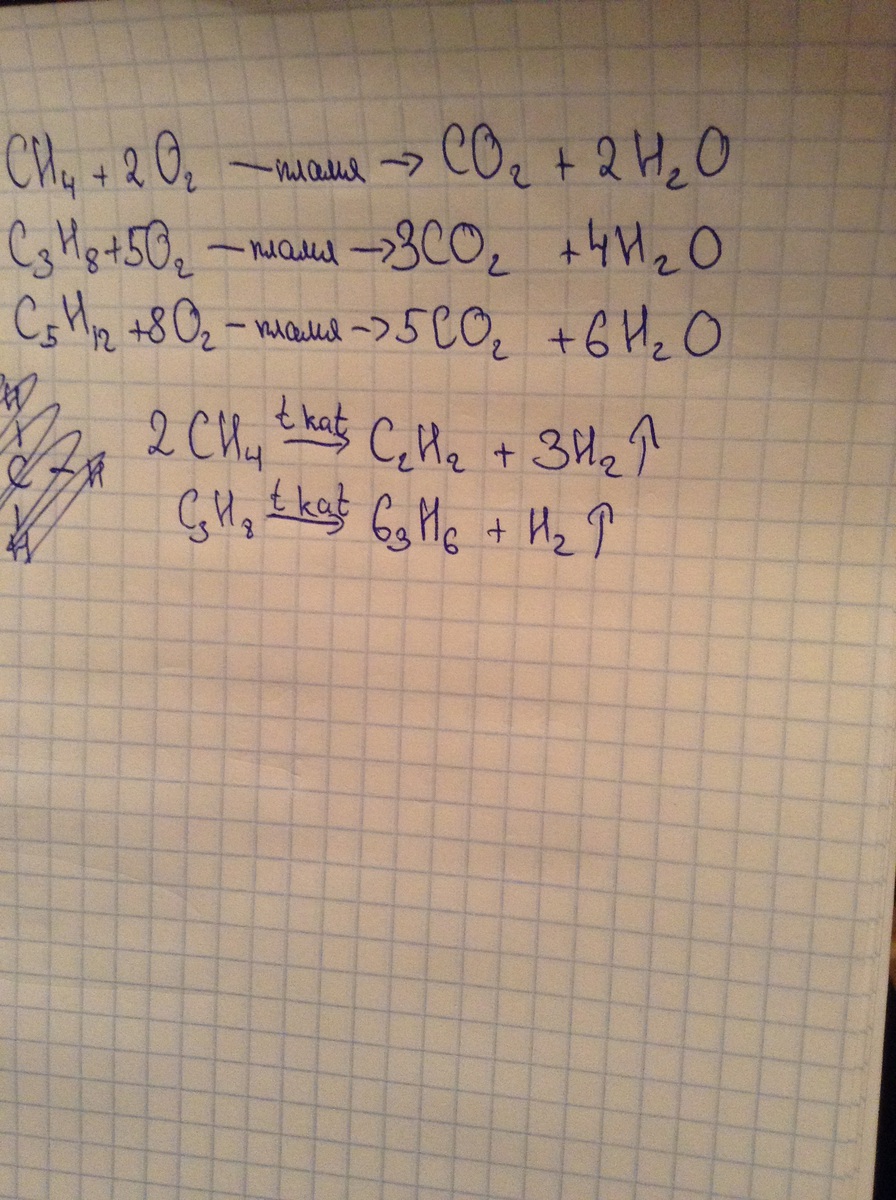 CH₄ + 2O₂ —пламя→ CO₂ + 2H₂O
C₃H₈+5O₂ —пламя→3CO₂ +4H₂O
C₅H₁₂ +8O₂ —пламя→5CO₂ +6H₂O
2CH₄ t kat → C₂H₂ + 3H₂↑
C₃H₈ t kat → C₃H₆ + H₂↑